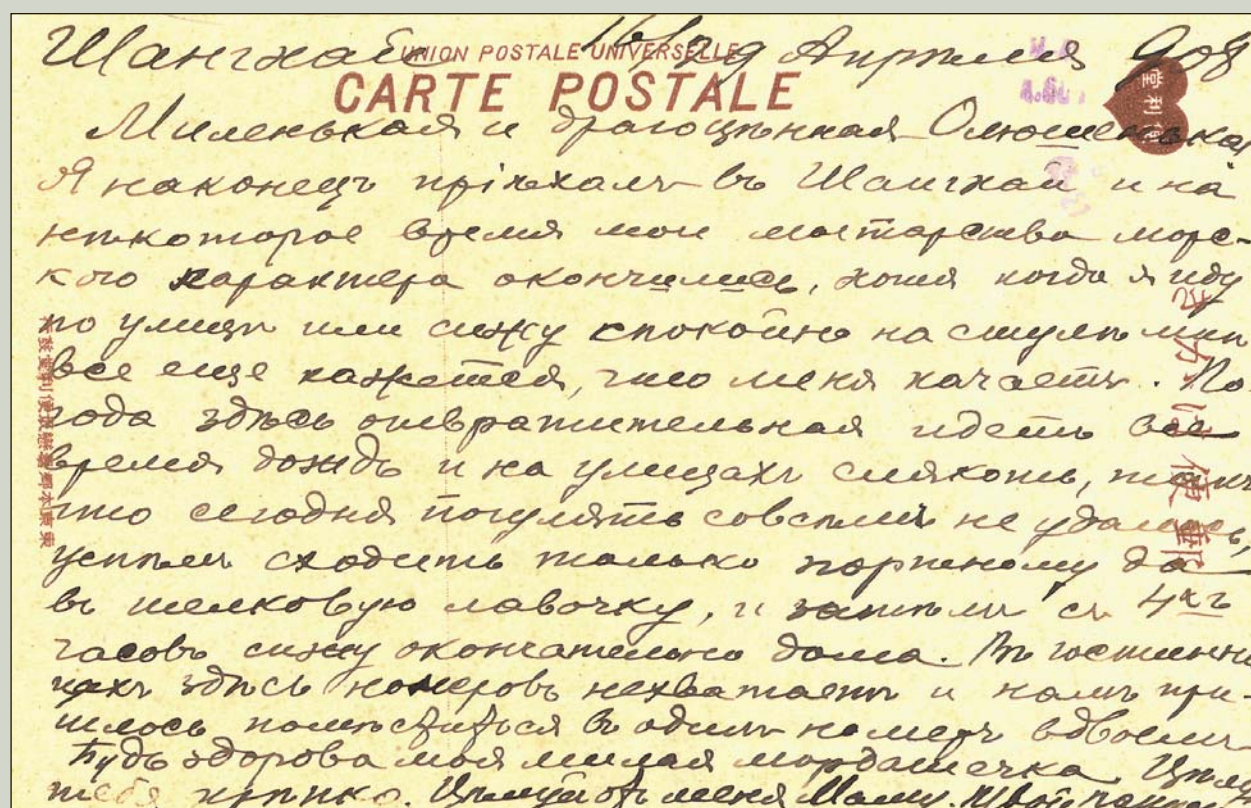 Шангхай 16/29 Апреля 908
UNION POSTALE UNIVERSELLE
CARTE POSTALE
Миленькая и драгоцѣнная Олюшенька
Я наконецъ пріѣхалъ въ Шангхай и на
нѣкоторое время мои мытарства морс-
кого характера окончились, хотя когда я иду
по улицѣ или сижу спокойно на стулѣ мнѣ
все еще кажется, что меня качаетъ. По-
года здѣсь отвратительная идетъ все
время дождь и на улицахъ слякоть, такъ
что сегодня погулять совсѣмъ не удалось,
успѣли сходить только портному да
въ шелковую лавочку, и затѣмъ съ 4хъ
часовъ сижу окончательно дома. Въ гостинни-
цахъ здѣсь номеровъ нехватаетъ и намъ при-
шлось помѣститься въ одинъ номеръ вдвоемъ
Будь здорова моя милая мордашечка Цѣлую
тебя крѣпко. Цѣлуй отъ меня Маму. Твой